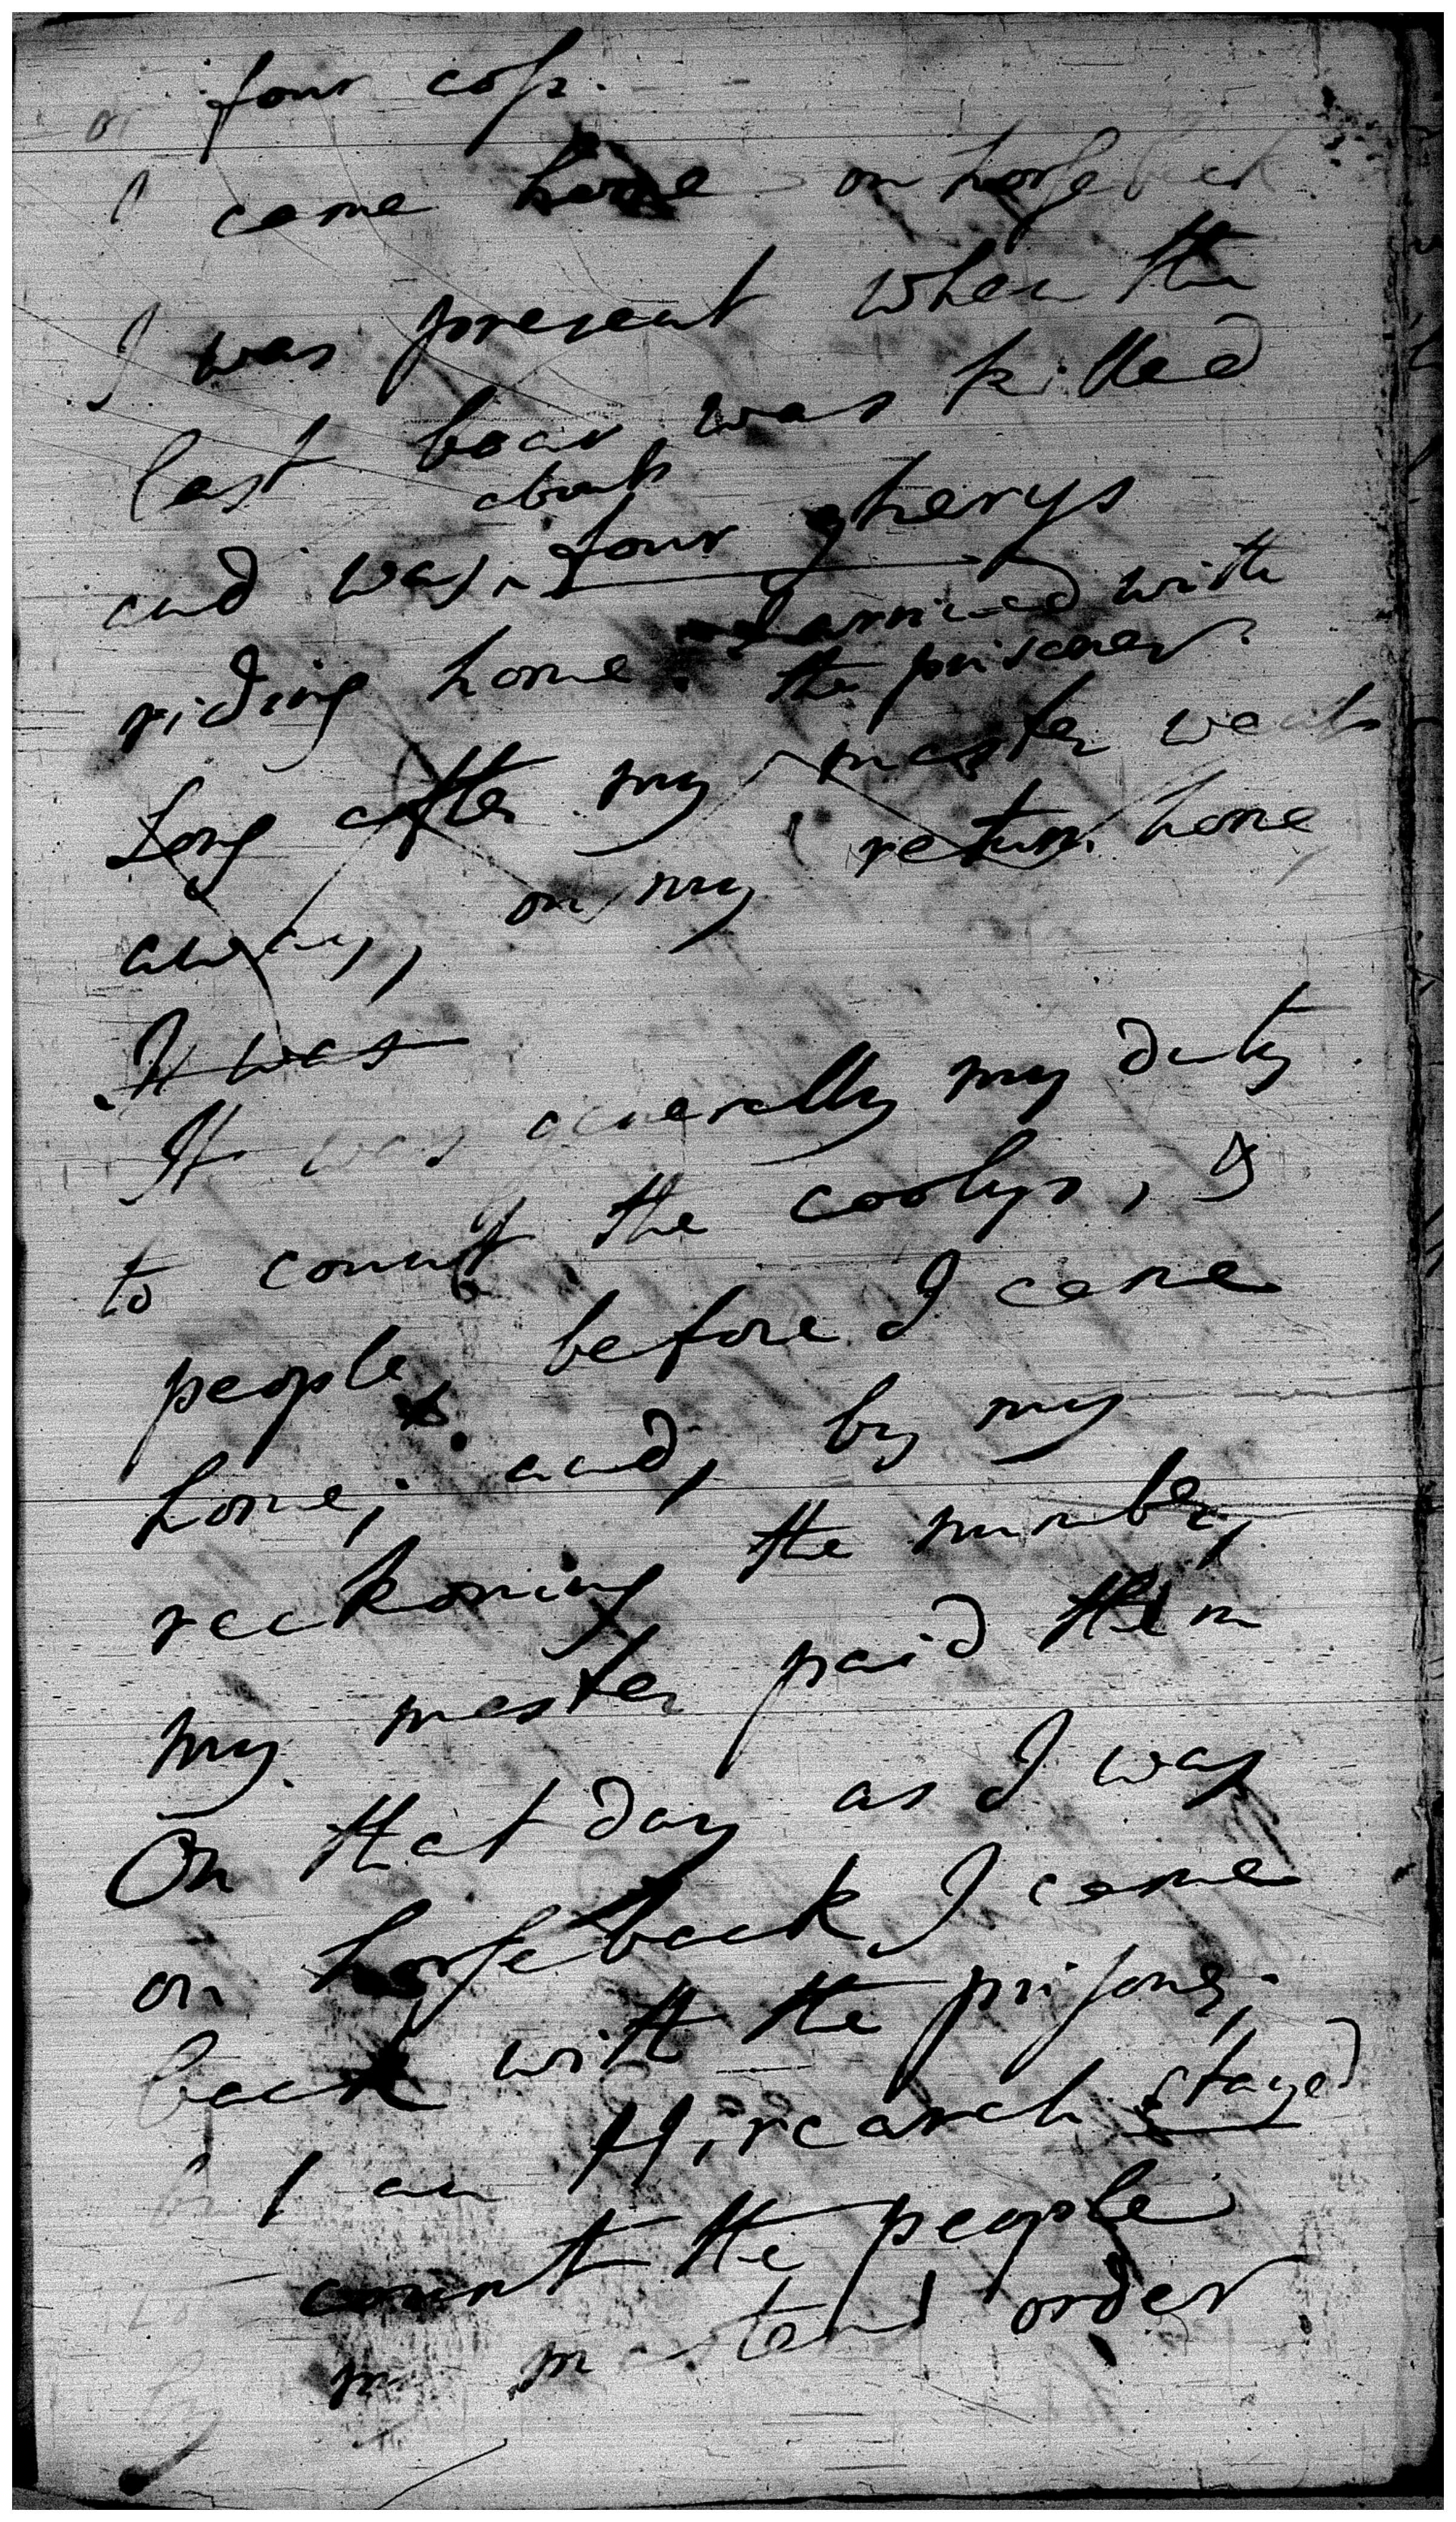 or four coss.
I came home on horseback
I was present when the
last boar was killed
about
and was, four gherys
riding home. I arrived with
the prisoner.
Long after my master went
away, on my return home
It was
It was generally my duty
to count the coolys, &
people, before I came
home; and, by my
reckoning the number,
my master paid them
On that day as I was
on horseback I came
back with the prisoner.
an Hircarah stayed
count the people
my masters order